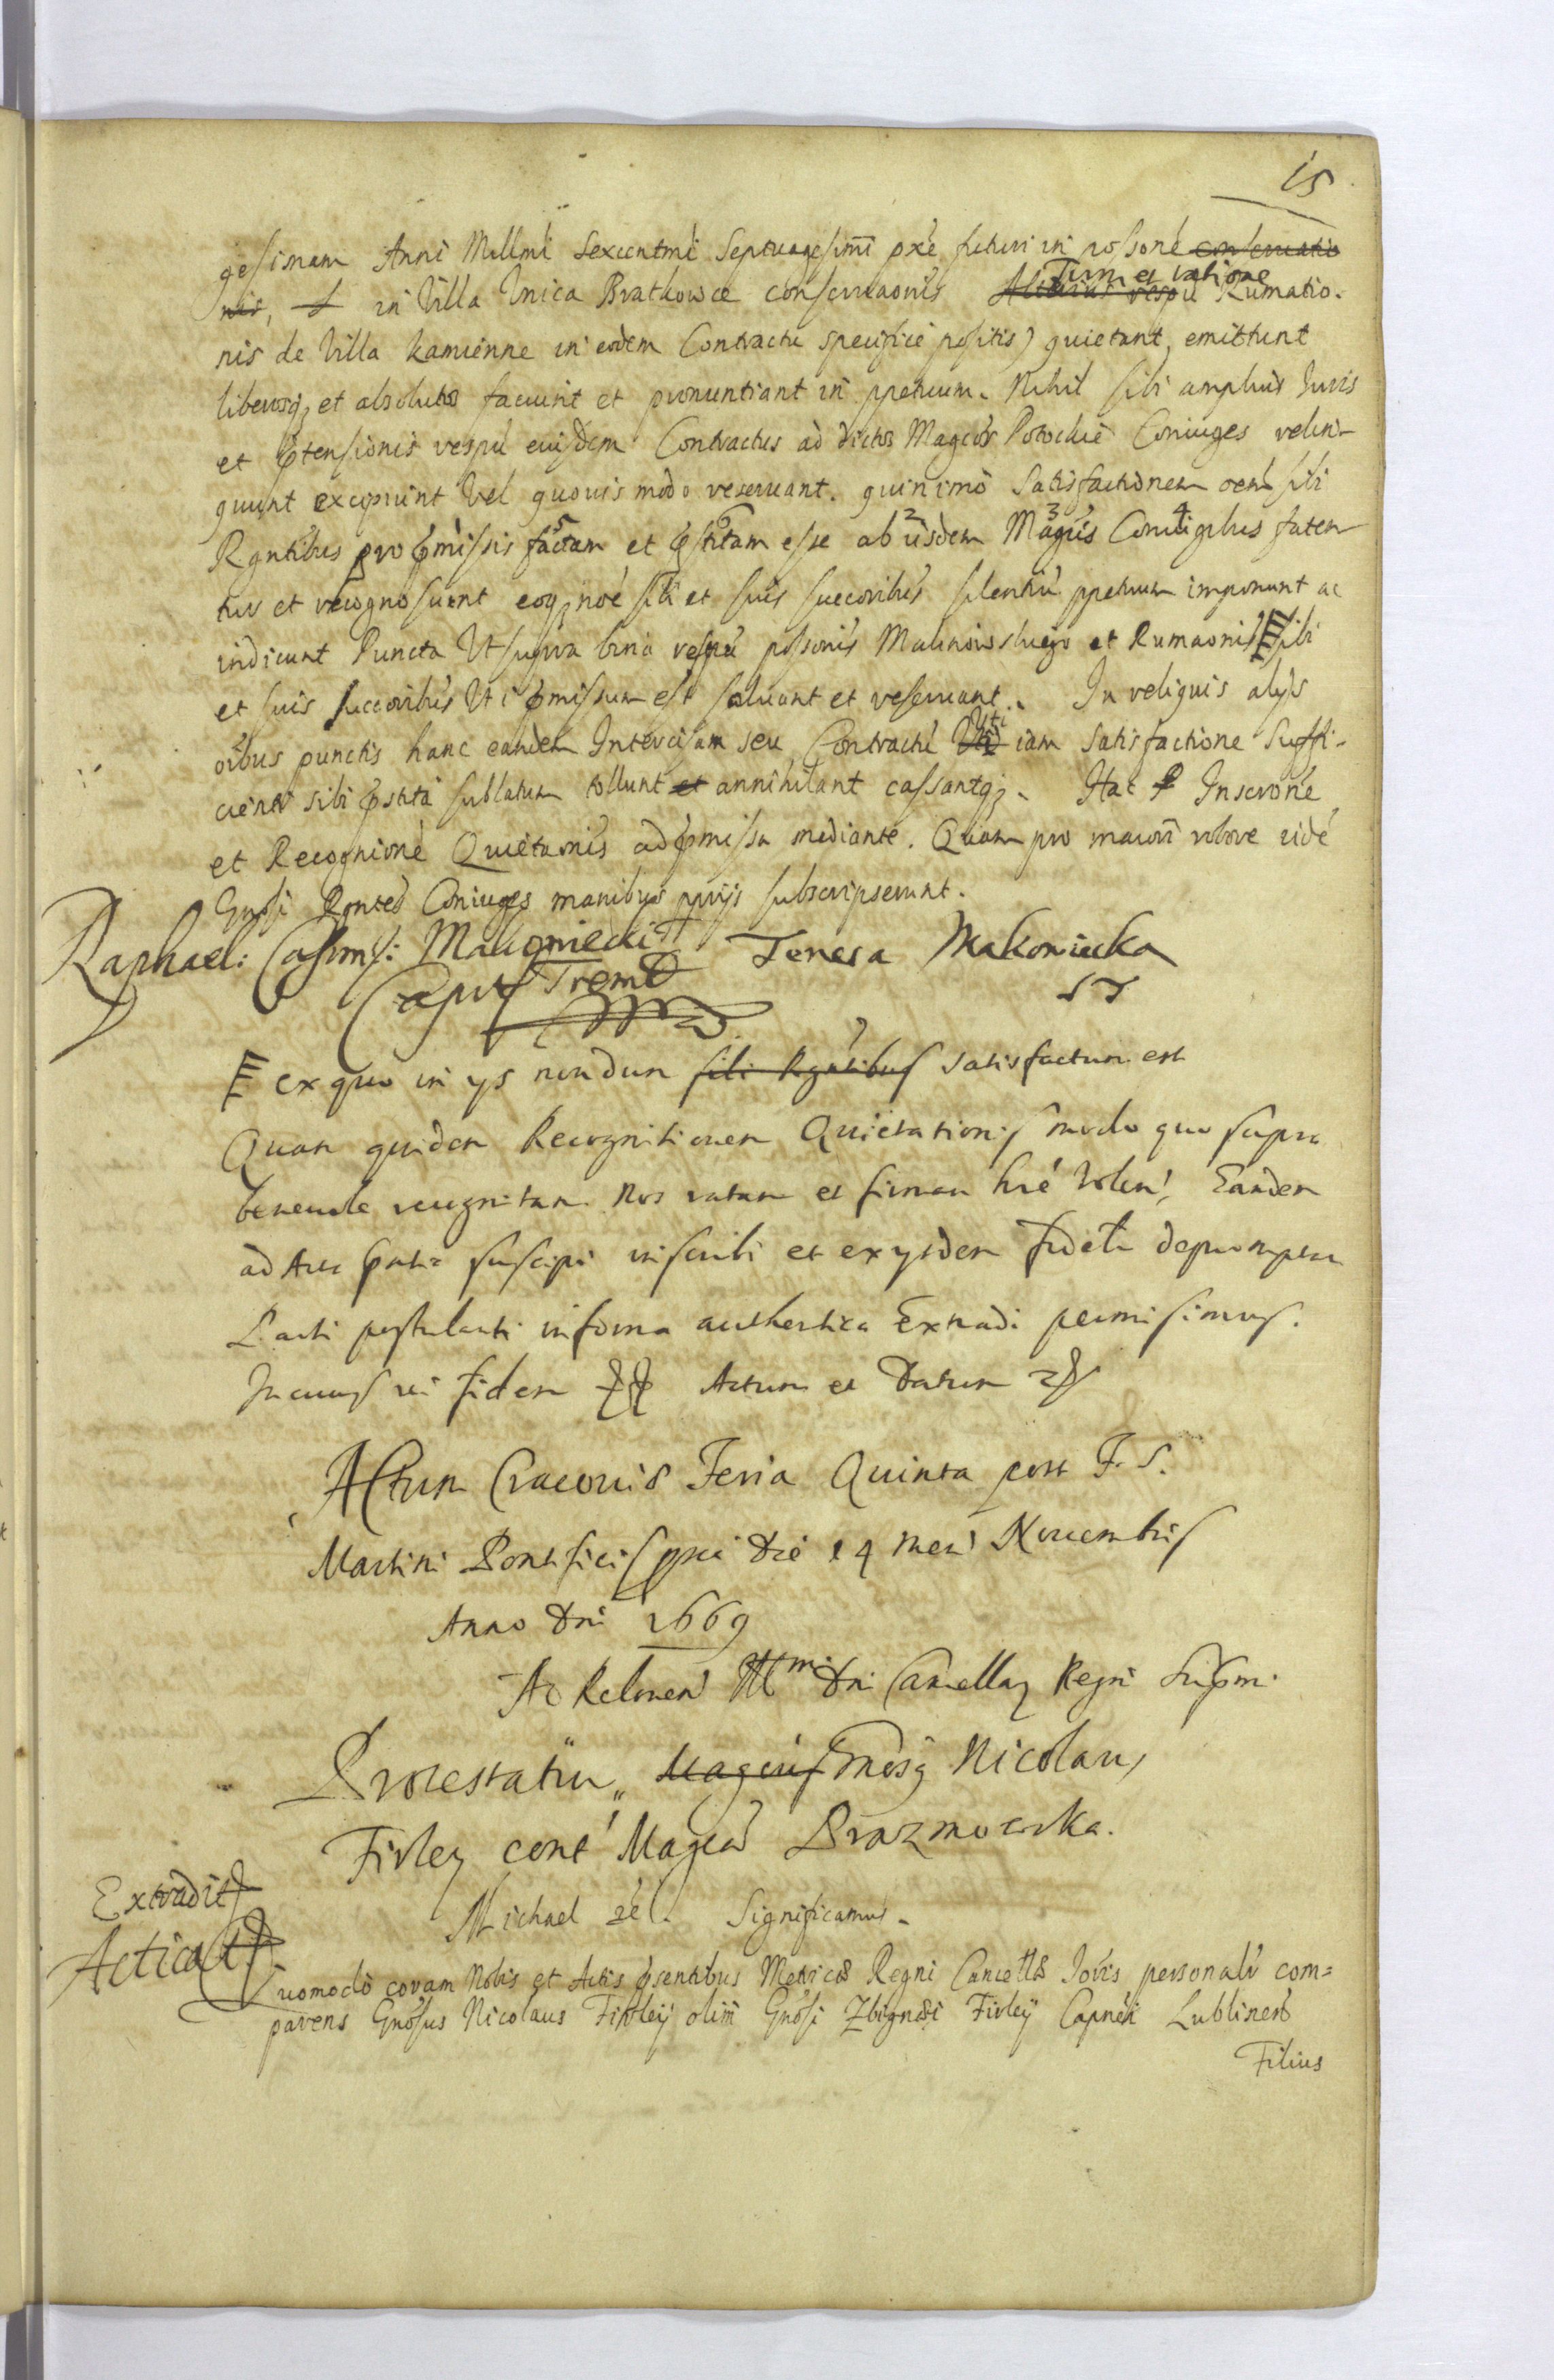 15
gesimam Anni Millmi Sexcentmi Septuagesimi pxe futuri in possone conseruatio
nis, et in Villa Vnica Bratkowce conseruaonis Alterius respu Tum et ratione Rumatio-
nis de Villa Kamienne in eodem Contractu specifice positis) quietant, emittunt
liberosq; et absolutos faciunt et pronuntiant in ppetuum. Nihil sibi amplius Iuris
et ptensionis respu eiusdem Contractus ad dictos Magcos Potockie Coniuges relin-
quunt excipiunt Vel quouis modo reseruant. quinimo Satisfactionem oem sibi
Rgntibus pro pmissis factam et pstitam esse ab iisdem Magcis Coniugibus faten
tur et recognoscunt eoq; noe sibi et suis succoribus silentiu ppetuum imponunt ac
indicunt Puncta Vt supra bina respu possonis Malinowskiego et Rumaonis sibi
et suis succoribus Vti pmissum est saluant et reseruant. In reliquis alijs
oibus punctis hanc eandem Intercisam seu Contractu Vti iam satisfactione Suffi-
cienter sibi pstita sublatum tollunt et annihilant cassantq;. Hac Inscrone
et Recognione Quietaonis ad pmissa mediante. Quam pro maiori robore iide
Gnosi Rgntes Coniuges manibus pprijs subscripserunt.
Raphael: Casimi: Makowiecki
Teresa Makowiecka
Capit Tremb
ST
ex quo in ys nondum sibi Rgntibus satisfactum est
Quam quidem Recognitionem Quietationis modo quo supra
beneuole recognitam Nos ratam et firmam hre Volen, Eandem
ad Acta pntia suscipi inscribi et ex ysdem fidelr depromptam
Parti postulanti in forma authentica Extradi permisimus.
In cuius rei fidem Actum et Datum
Actum Cracouiae Feria Quinta post F. S.
Martini Pontificis pxia die 14 mens Nouembris
Anno Dni 1669
Ad Relonem Illmi Dni Cancellarij Regni Supmi
Protestatur Magcus Gnosq Nicolaus
Firley cont Magca Prazmowska.
Extradit
Michael etc. Significamus.
Acticat.
Quomodo coram Nobis et Actis psentibus Metrices Regni Cancellae Ioris personalr com=
parens Gnosus Nicolaus Firleÿ olim Gnosi Zbignei Firleÿ Capnei Lublinen
Filius